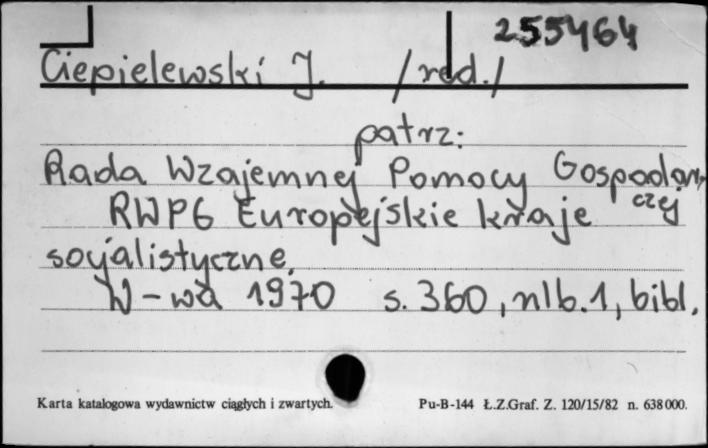 255464
Ciepielewski J. /red./
patrz:
Rada Wzajemnej Pomocy Gospodar
czej
RWPG Europejskie kraje
socjalistyczne.
W-wa 1970 s. 360, nlb. 1, bibl.
Karta katalogowa wydawnictw ciągłych i zwartych.
Pu-B-144 Ł.Z.Graf. Z. 120/15/82 n. 638000.